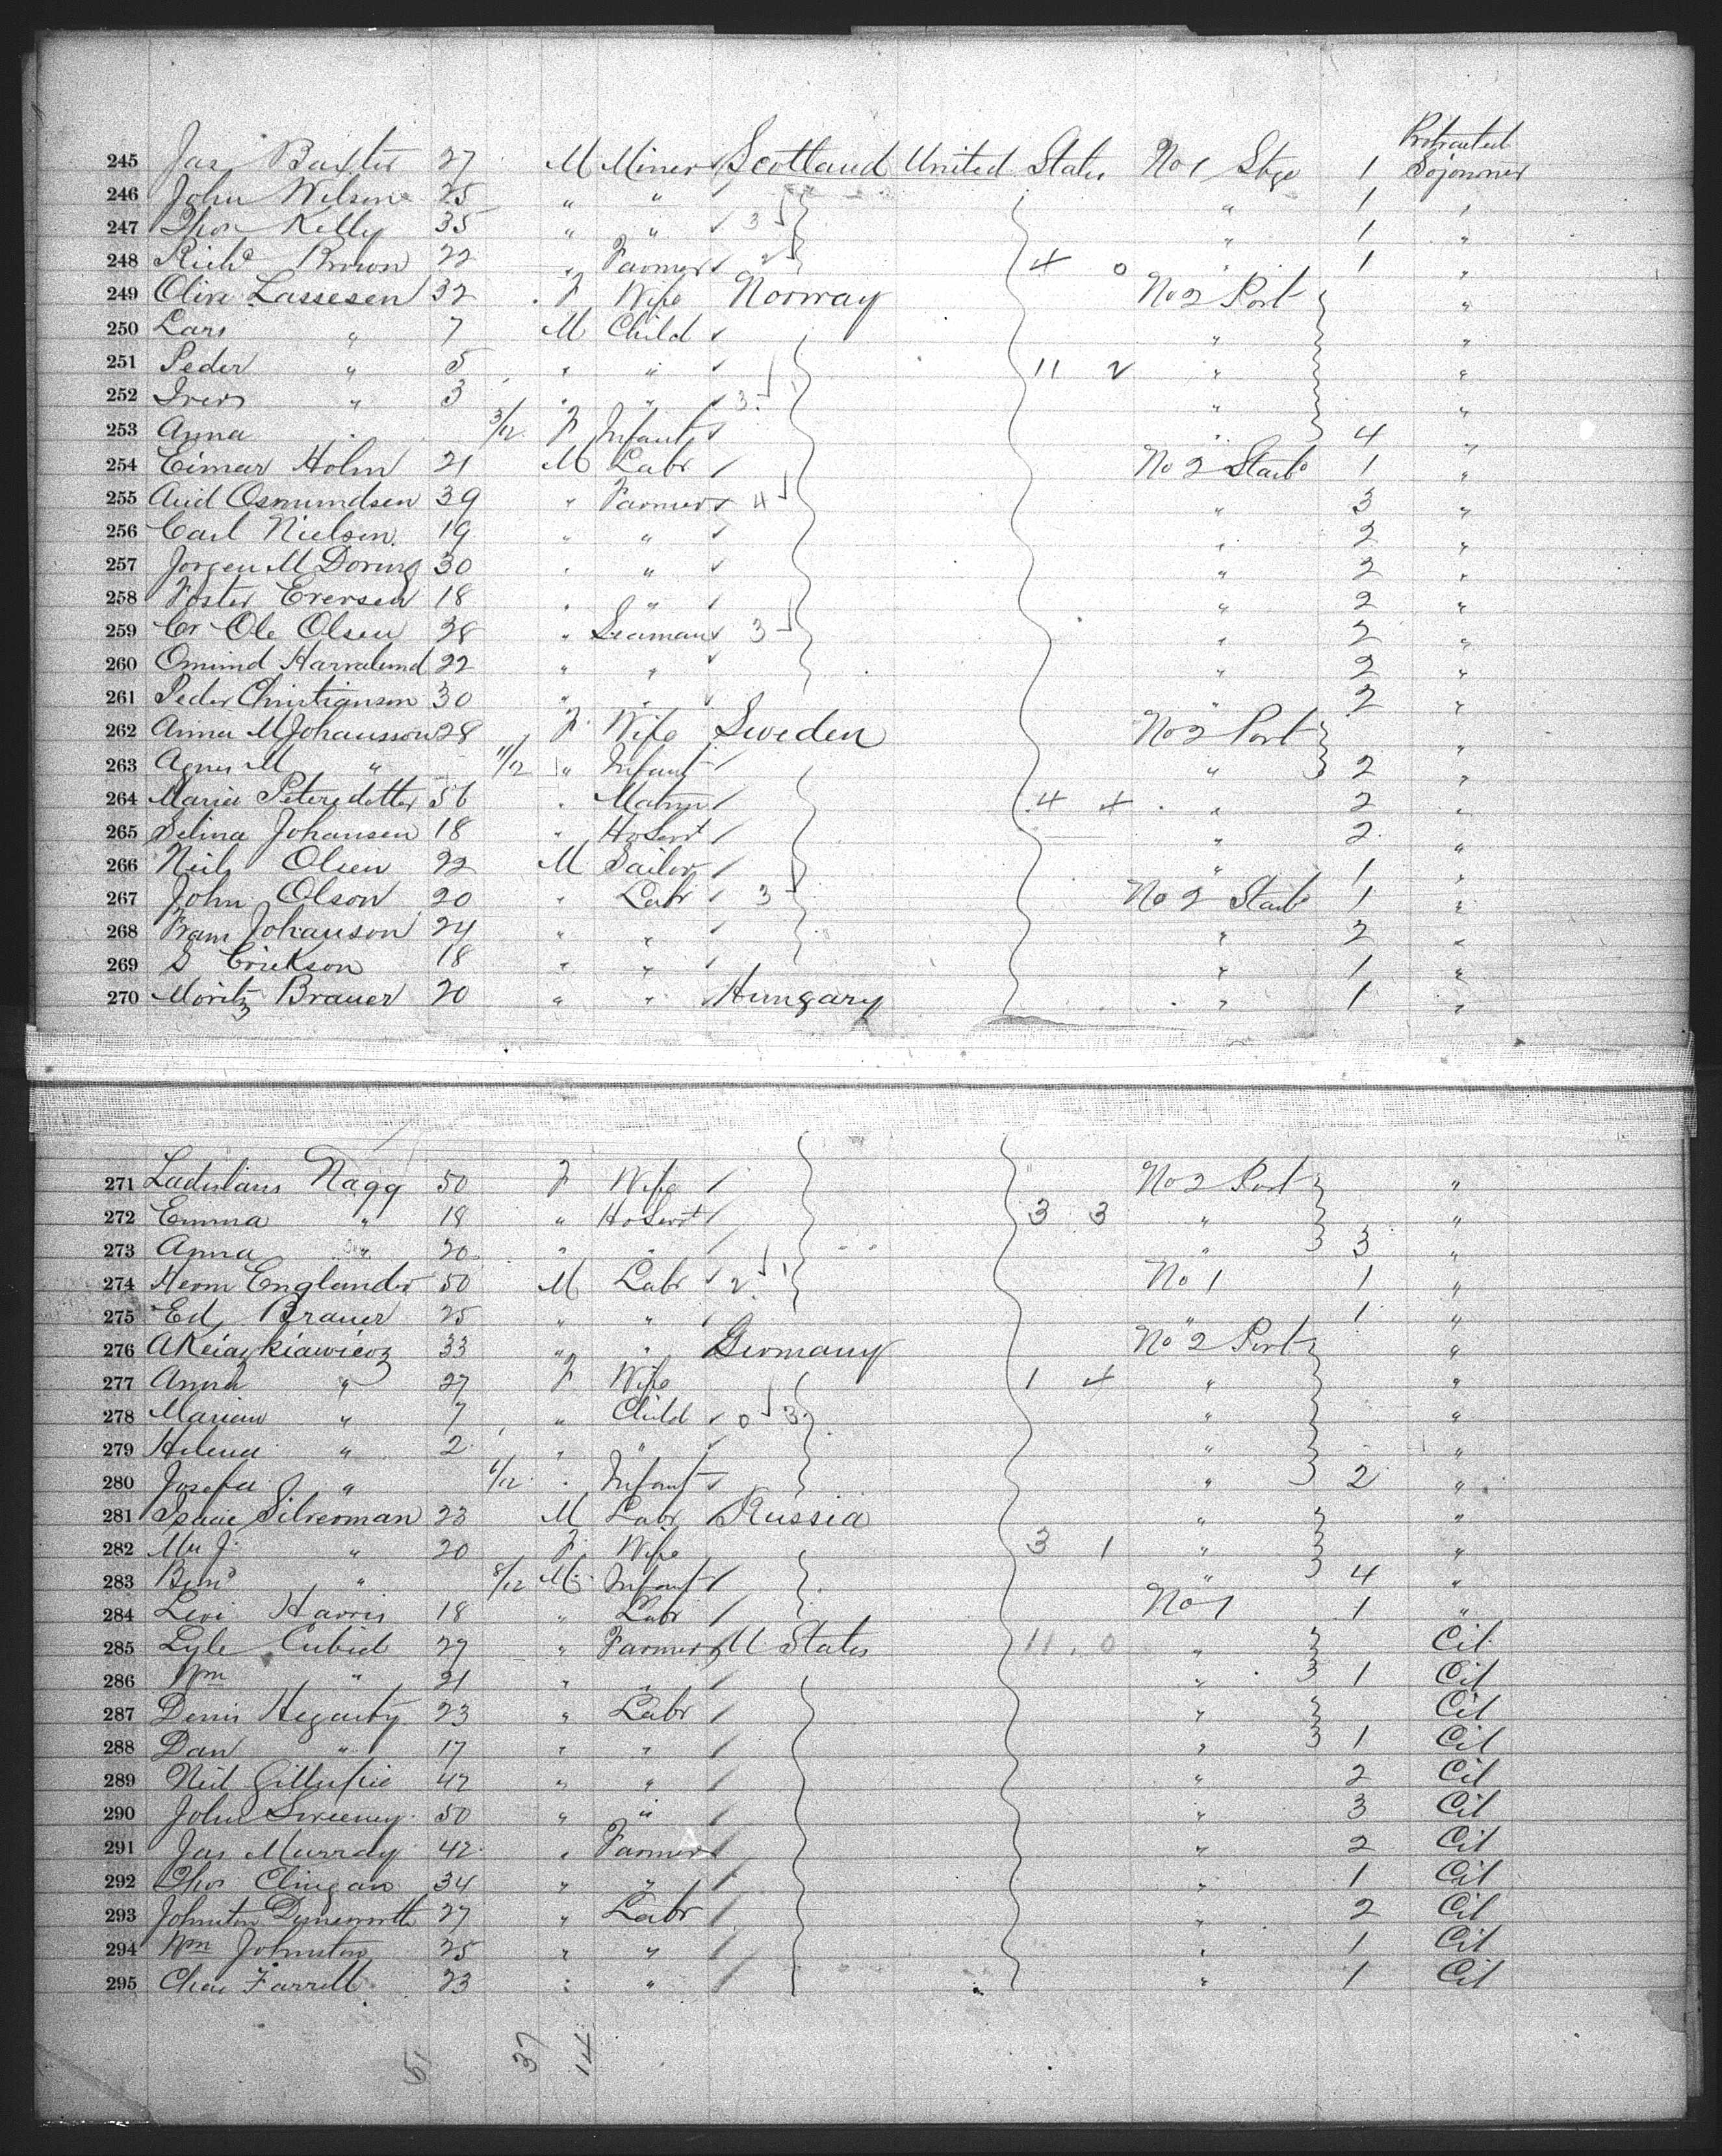 Protracted
245 Jas Baxter 27 M Miner Scotland United States No 1 Stge 1 Sojourner
246 John Wilson 25 " " " 1 "
247 Thos Kelly 35 " " 3 " 1 "
248 Richd Brown 22 " Farmer 2 4 0 " 1 "
249 Olive Lassesen 32 F Wife Norway No 2 Port "
250 Lars " 7 M Child " "
251 Peder " 5 " " 11 2 " "
252 Ivers " 3 " " 3 " "
253 Anna " 3/12 F Infant " 4 "
254 Eimar Holm 21 M Labr No 2 Starbd 1 "
255 Osmundsen 39 " Farmer 4 " 3 "
256 Carl Nielsen 19 " " " 2 "
257 Jorgen M Doring 30 " " " 2 "
258 Foster Eversen 18 " " " 2 "
259 Cr Ole Olsen 28 " Seaman 3 " 2 "
260 22 " " " 2 "
261 Peder Christiansen 30 " " " 2 "
262 Anna M Johansson 28 F Wife Sweden No 2 Port "
263 Agnes M " 11/12 " Infant " 2 "
264 Maria Petersdotter 56 " Matron 4 4 " 2 "
265 Selina Johansen 18 " HoServt " 2 "
266 Neils Olsen 22 M Sailor " 1 "
267 John Olson 20 " Labr 3 No 2 Starbd 1 "
268 Johanson 24 " " " 2 "
269 S Erickson 18 " " " 1 "
270 Moritz Brauer 20 " " Hungary " 1 "
271 Ladislaus Nagg 50 F Wife No 2 Port "
272 Emma " 18 " HoServt 3 3 " "
273 Anna " 20 " " " 3 "
274 Herm Englander 50 M Labr 2 1 No 1 1 "
275 Ed Brauer 25 " " " 1 "
276 33 " " Germany No 2 Port "
277 Anna " 27 F Wife 1 4 " "
278 Mariam " 7 " Child 0 3 " "
279 Helena " 2 " " " "
280 Josefa " 6/12 " Infant " 2 "
281 Isaac Silverman 23 M Labr Russia " "
282 " 20 F Wife 3 1 " "
283 Benj " 8/12 M Infant " 4 "
284 Levi Harris 18 " Labr No 1 1 "
285 Lyle Cubid 27 " Farmer U States 11 0 " Cit
286 Wm " 21 " " " 1 Cit
287 Denis Hegarty 23 " Labr " Cit
288 Dan " 17 " " " 1 Cit
289 Neil Gillespie 47 " " " 2 Cit
290 John Sweeney 50 " " " 3 Cit
291 Jas Murray 42 " Farmer " 2 Cit
292 Thos Clingan 34 " " " 1 Cit
293 Johnston 27 " Labr " 2 Cit
294 Wm Johnston 25 " " " 1 Cit
295 Chas Farrell 23 " " " 1 Cit
51 37 14